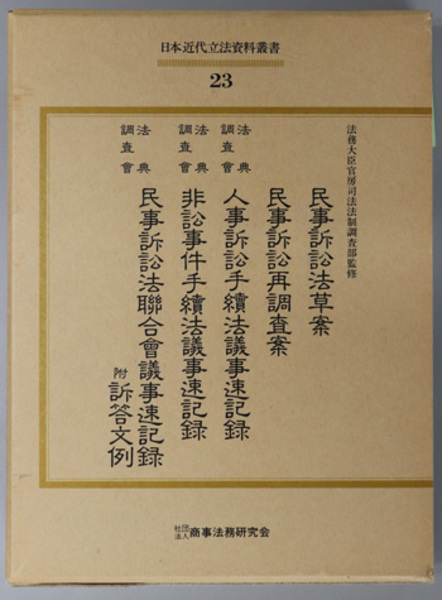 日本近代立法資料叢書
23
法務大臣官房司法法制調査部監修
民事訴訟法草案
民事訴訟再調査案
法典調査會
人事訴訟手續法議事速記録
法典調査會
非訟事件手續法議事速記録
法典調査會
民事訴訟法聯合會議事速記録
附 訴答文例
社団法人 商事法務研究会